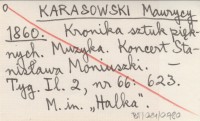 KARASOWSKI Maurycy
1860. Kronika sztuk pięk-
nych. Muzyka. Koncert Sta-
nisława Moniuszki. –
Tyg. Il. 2, nr 66: 623.
M. in. „Halka".